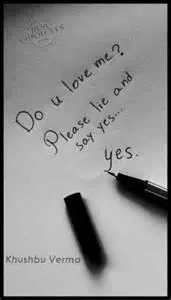 Do u love me?
Please lie and
say yes...
yes.
Khushbu Verma